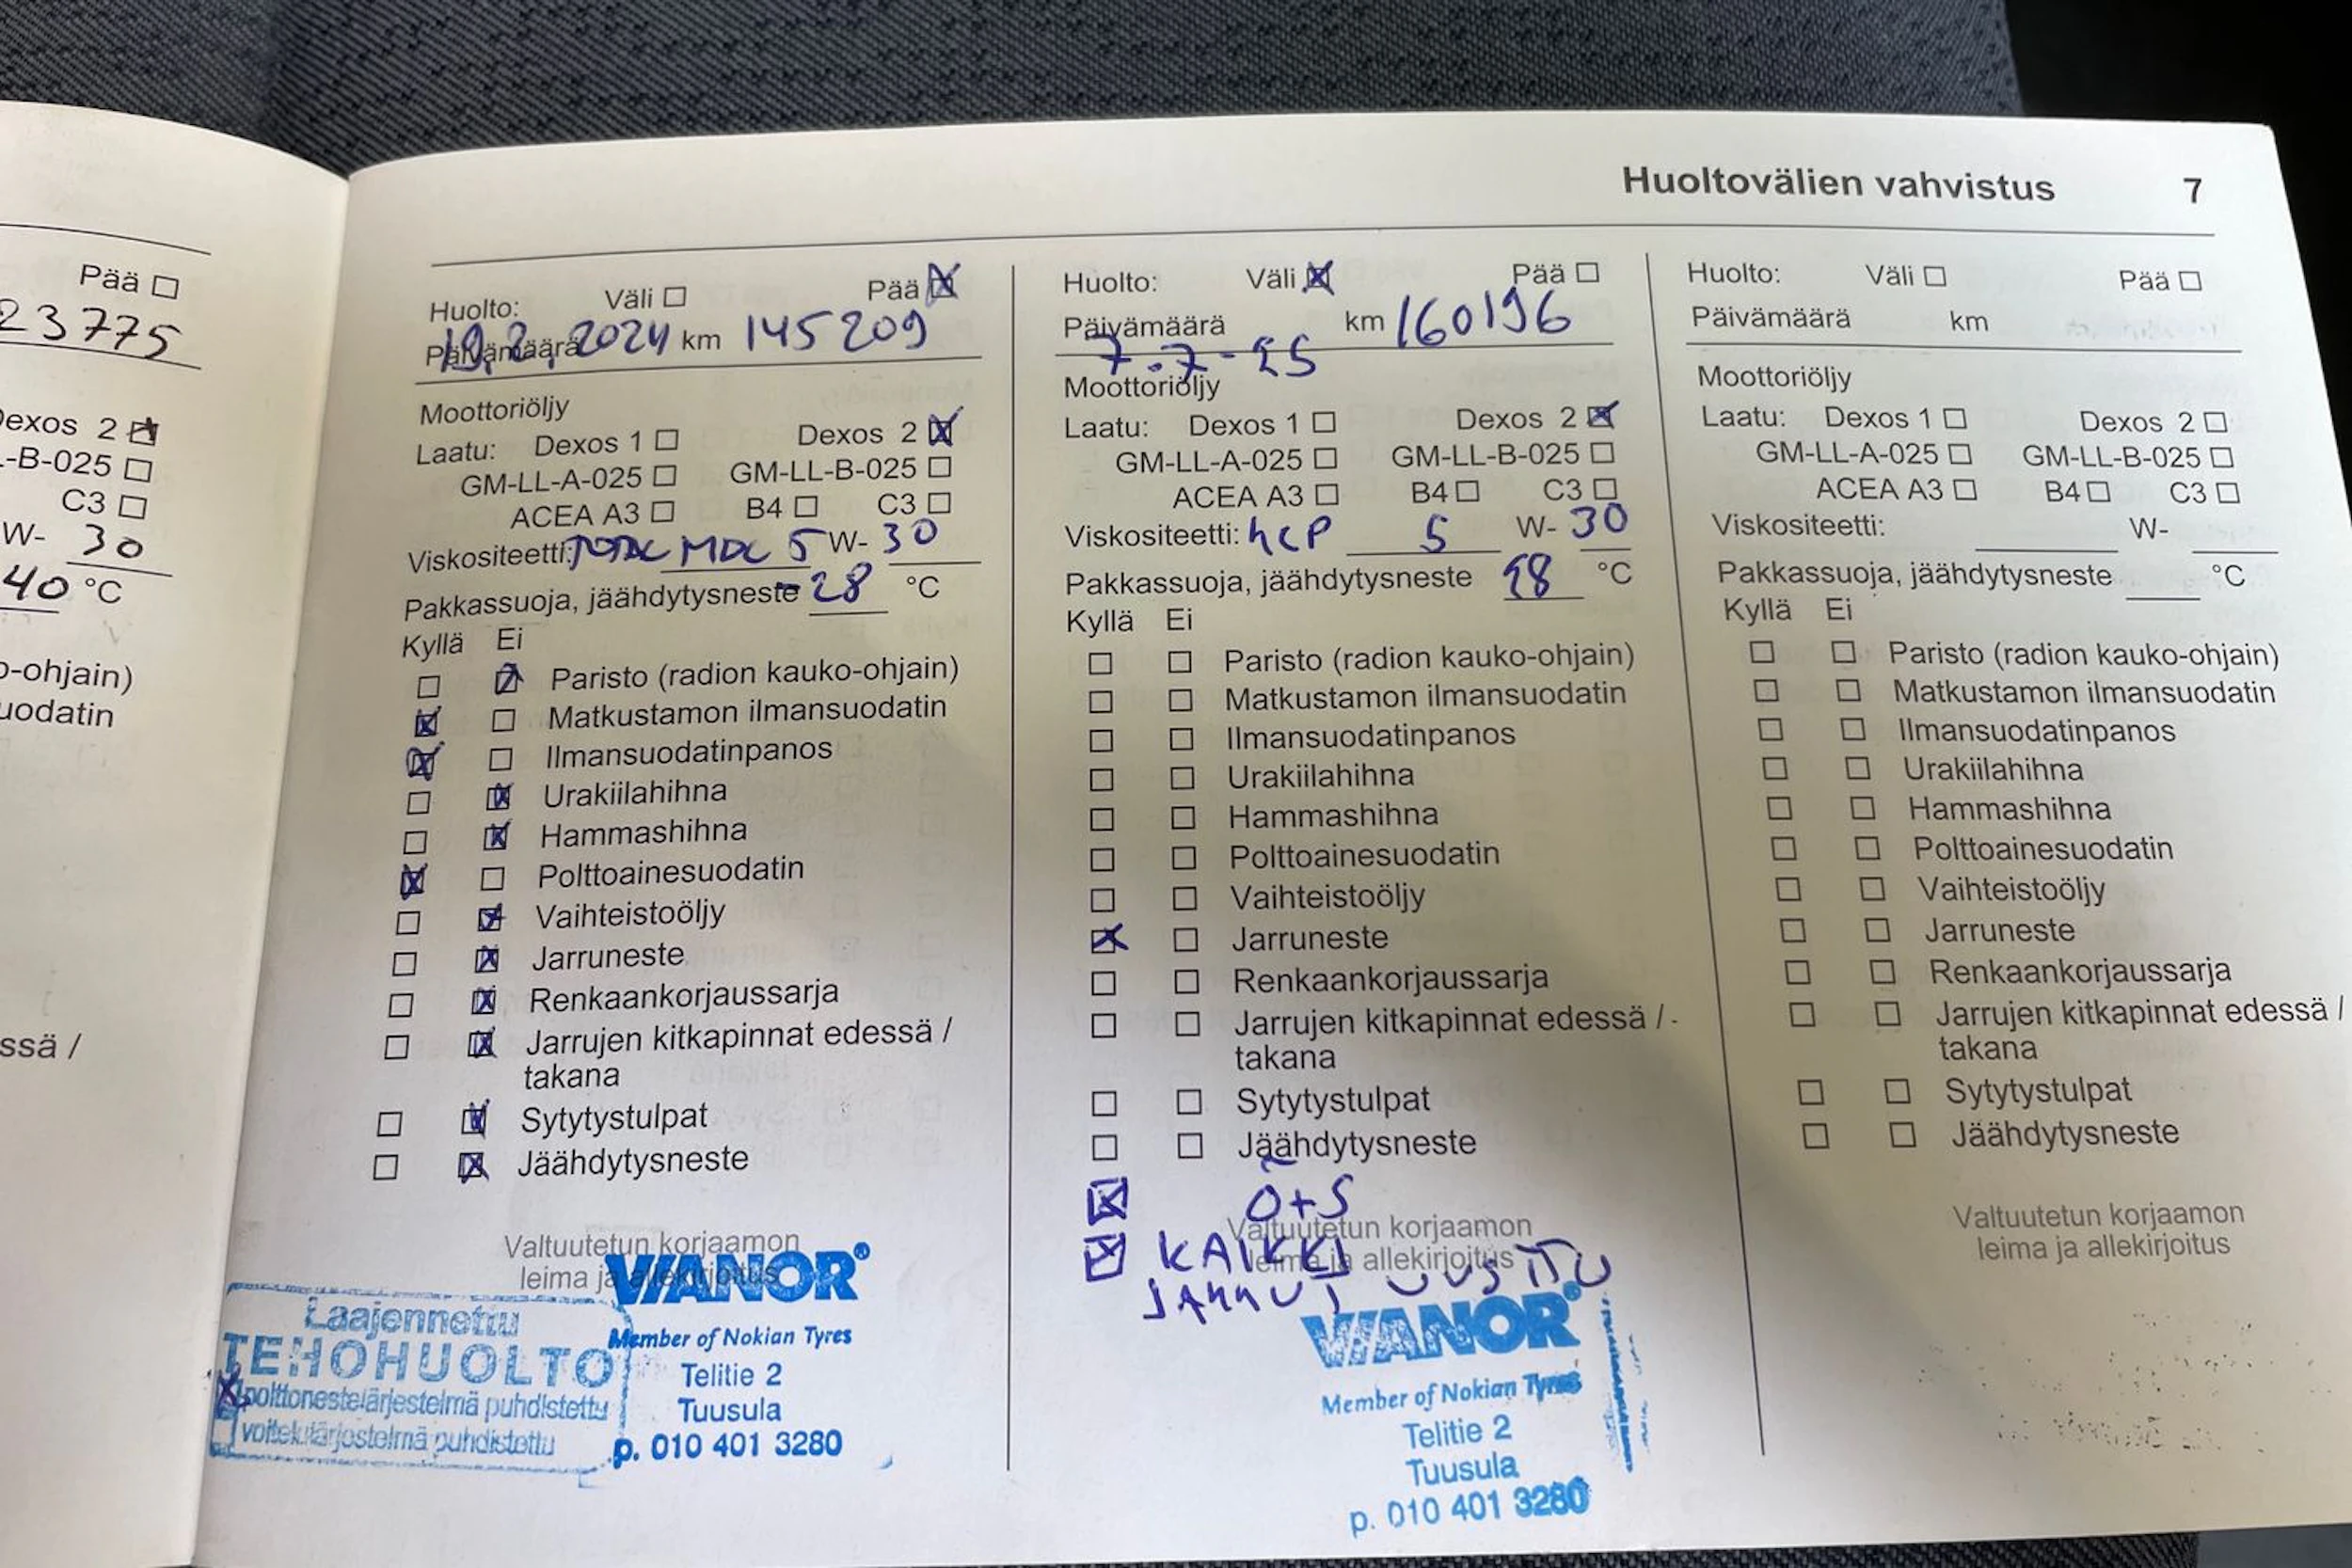 Pää ☐
23775
Dexos 2 ☒
-B-025 ☐
C3 ☐
W- 30
40 °C
o-ohjain)
uodatin
ssä /
Huoltovälien vahvistus 7
Huolto: Väli ☐ Pää ☒
Päivämäärä 19.2.2024 km 145209
Moottoriöljy
Laatu: Dexos 1 ☐ Dexos 2 ☒
GM-LL-A-025 ☐ GM-LL-B-025 ☐
ACEA A3 ☐ B4 ☐ C3 ☐
Viskositeetti: 5 W- 30
Pakkassuoja, jäähdytysneste -28 °C
Kyllä Ei
☐ ☒ Paristo (radion kauko-ohjain)
☒ ☐ Matkustamon ilmansuodatin
☒ ☐ Ilmansuodatinpanos
☐ ☒ Urakiilahihna
☐ ☒ Hammashihna
☒ ☐ Polttoainesuodatin
☐ ☒ Vaihteistoöljy
☐ ☒ Jarruneste
☐ ☒ Renkaankorjaussarja
☐ ☒ Jarrujen kitkapinnat edessä /
takana
☐ ☒ Sytytystulpat
☐ ☒ Jäähdytysneste
Valtuutetun korjaamon
leima ja allekirjoitus
WIANOR®
Member of Nokian Tyres
Telitie 2
Tuusula
p. 010 401 3280
Laajennettu
TEHOHUOLTO
☒ polttonestejärjestelmä puhdistettu
☐ voitelujärjestelmä puhdistettu
Huolto: Väli ☒ Pää ☐
Päivämäärä km 160196
7.7-25
Moottoriöljy
Laatu: Dexos 1 ☐ Dexos 2 ☒
GM-LL-A-025 ☐ GM-LL-B-025 ☐
ACEA A3 ☐ B4 ☐ C3 ☐
Viskositeetti: 5 W- 30
Pakkassuoja, jäähdytysneste °C
Kyllä Ei
☐ ☐ Paristo (radion kauko-ohjain)
☐ ☐ Matkustamon ilmansuodatin
☐ ☐ Ilmansuodatinpanos
☐ ☐ Urakiilahihna
☐ ☐ Hammashihna
☐ ☐ Polttoainesuodatin
☐ ☐ Vaihteistoöljy
☒ ☐ Jarruneste
☐ ☐ Renkaankorjaussarja
☐ ☐ Jarrujen kitkapinnat edessä /
takana
☐ ☐ Sytytystulpat
☐ ☐ Jäähdytysneste
☒ Ö+S
Valtuutetun korjaamon
leima ja allekirjoitus
☒ KAIKKI
JARRUT UUSITTU
WIANOR®
Member of Nokian Tyres
Telitie 2
Tuusula
p. 010 401 3280
Huolto: Väli ☐ Pää ☐
Päivämäärä km
Moottoriöljy
Laatu: Dexos 1 ☐ Dexos 2 ☐
GM-LL-A-025 ☐ GM-LL-B-025 ☐
ACEA A3 ☐ B4 ☐ C3 ☐
Viskositeetti: W-
Pakkassuoja, jäähdytysneste °C
Kyllä Ei
☐ ☐ Paristo (radion kauko-ohjain)
☐ ☐ Matkustamon ilmansuodatin
☐ ☐ Ilmansuodatinpanos
☐ ☐ Urakiilahihna
☐ ☐ Hammashihna
☐ ☐ Polttoainesuodatin
☐ ☐ Vaihteistoöljy
☐ ☐ Jarruneste
☐ ☐ Renkaankorjaussarja
☐ ☐ Jarrujen kitkapinnat edessä /
takana
☐ ☐ Sytytystulpat
☐ ☐ Jäähdytysneste
Valtuutetun korjaamon
leima ja allekirjoitus